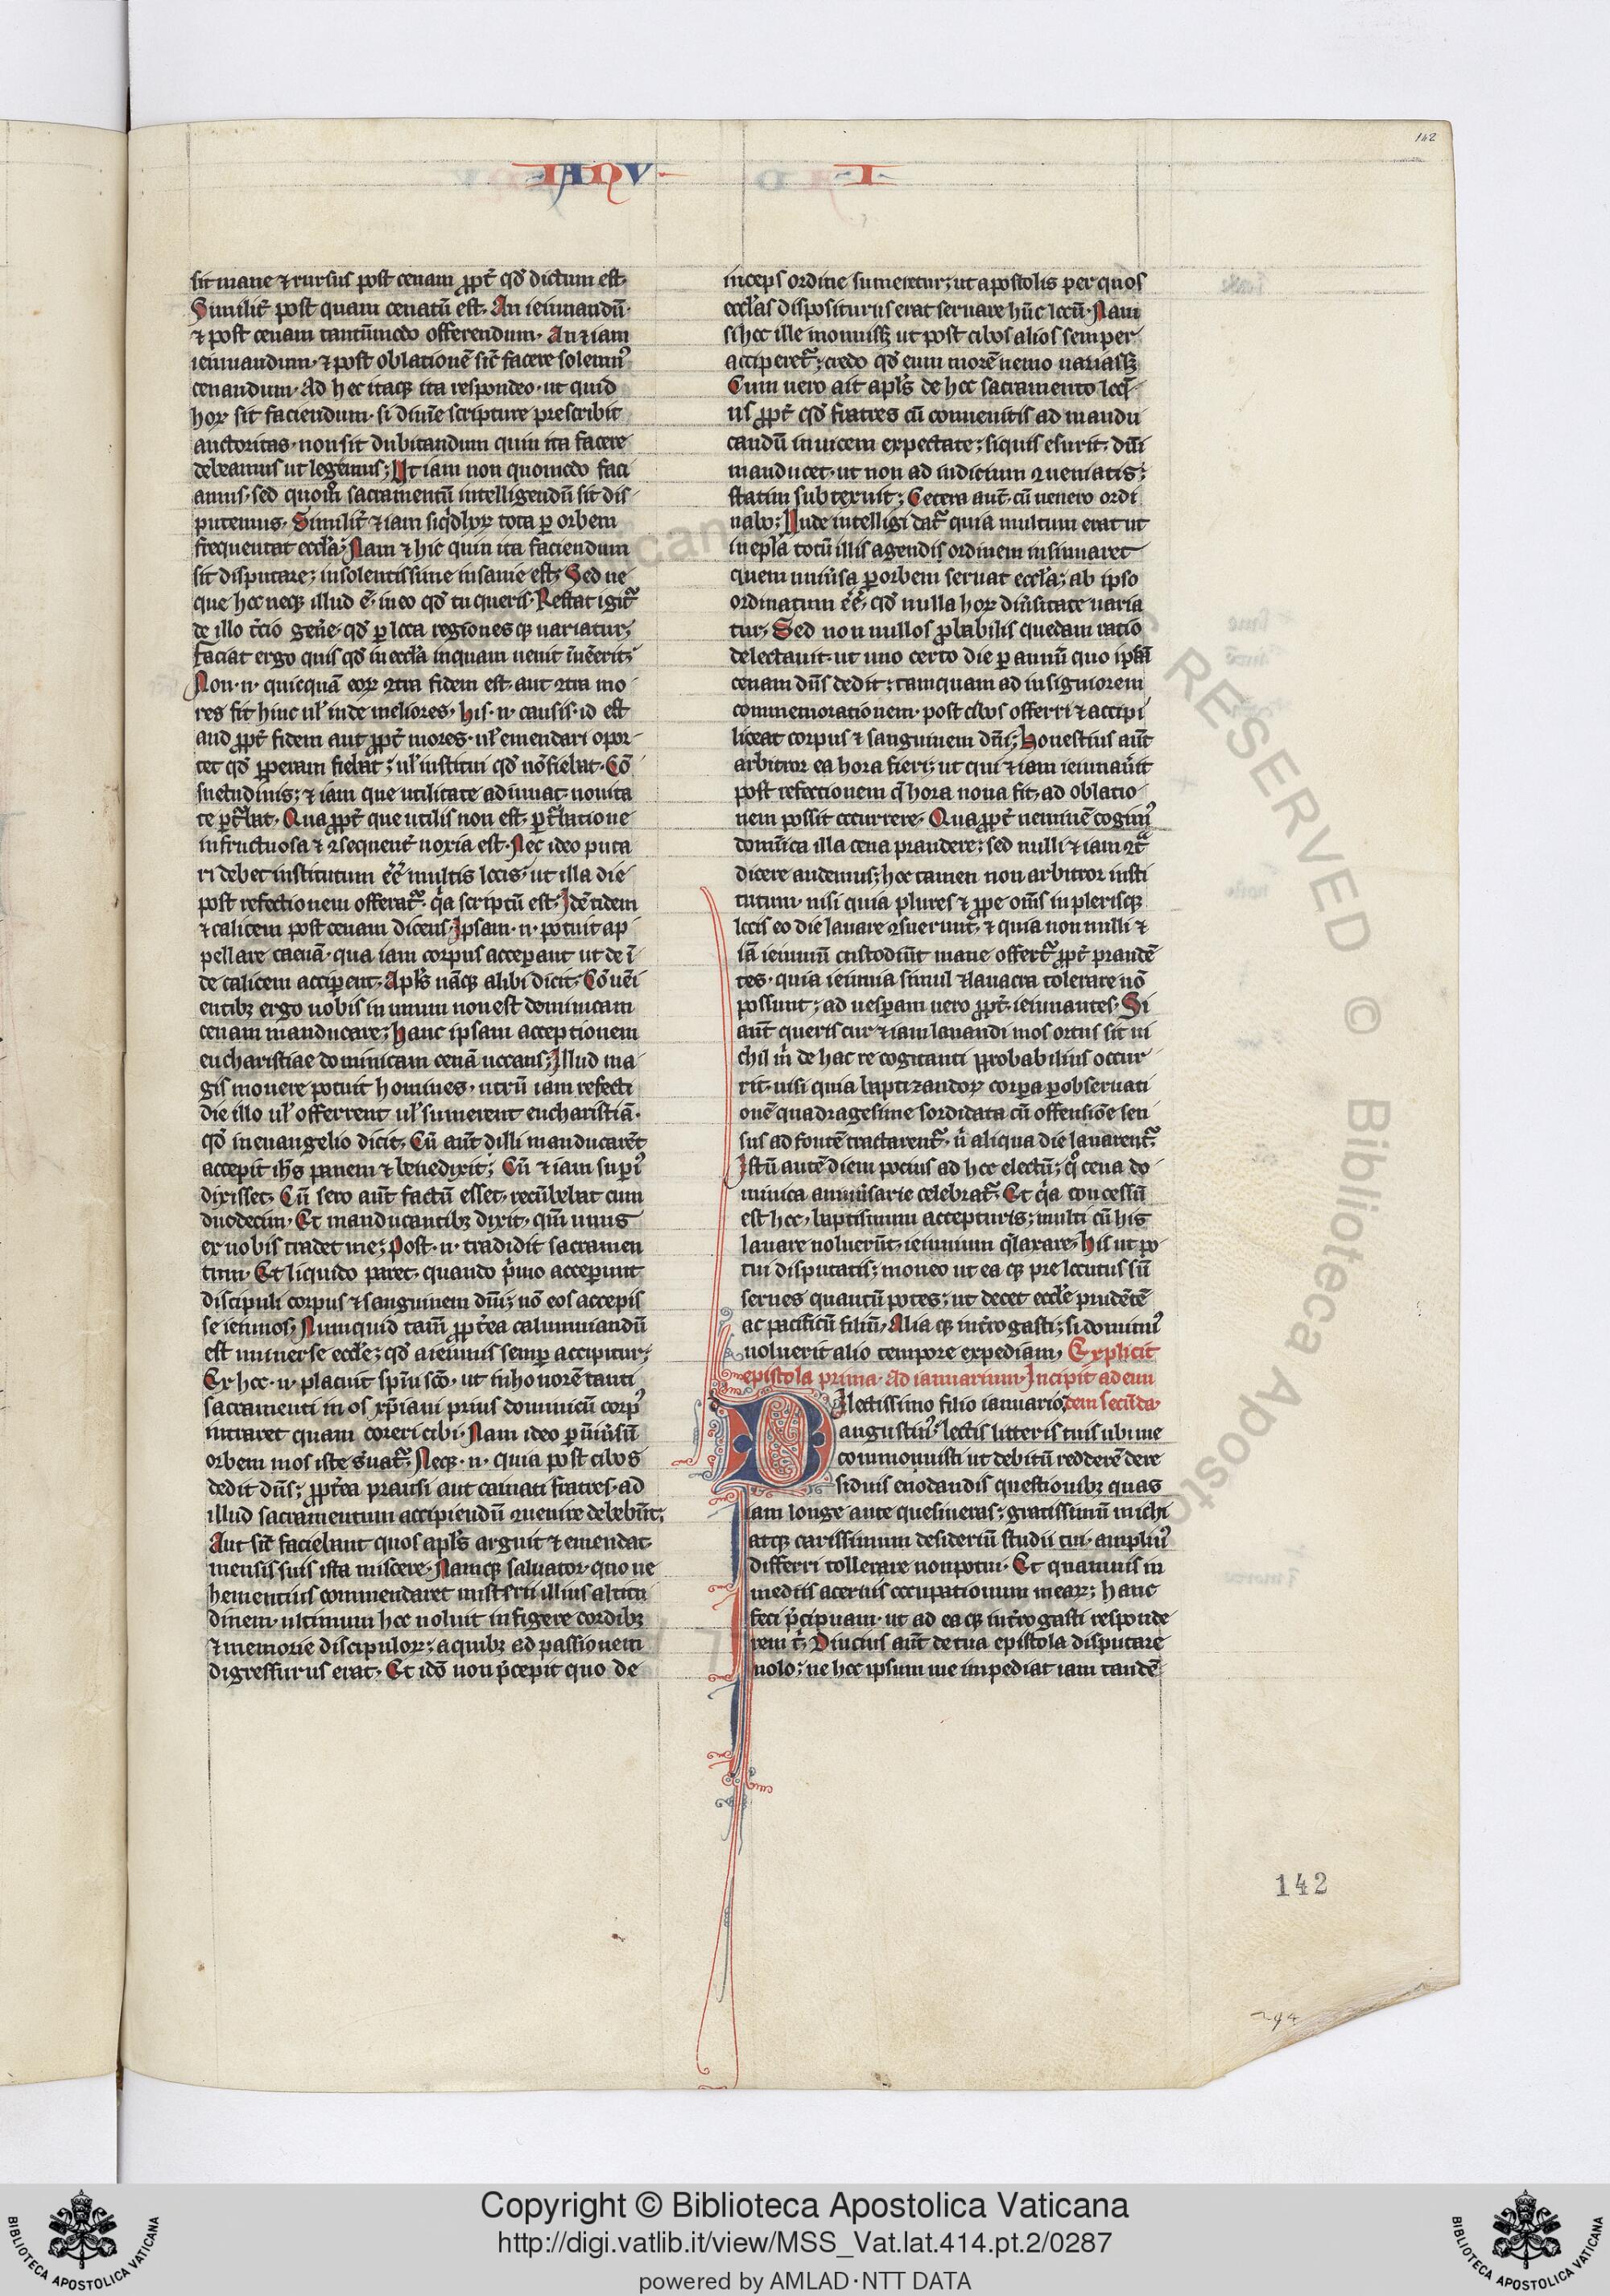 142
IANV I
sit mane ⁊ rursus post cenam ꝓpt̄ qd̄ dictum est.
Similit̄ post quam cenatū est. An ieiunandū.
⁊ post cenam tantūmodo offerendum. An etiam
ieiunandum. ⁊ post oblationē sic̄ facere solemꝰ
cenandum. Ad hec itaqꝫ ita respondeo. ut quid
hoꝝ sit faciendum. si diuīe scripture prescribit
auctoritas. non sit dubitandum quin ita facere
debeamus ut legimus; Ut iam non quomodo faci
amus. sed quom̊ sacramentū intelligendū sit dis
putemus. Similit̄ ⁊iam siqd̄ hoꝝ tota ꝑ orbem
frequentat eccl̄a. Nam ⁊ hic quin ita faciendum
sit disputare; insolentissime insanie est. Sed ne
que hoc neqꝫ illud ē. in eo qd̄ tu queris. Restat igit᷑
de illo t̄cio gen̄e. qd̄ ꝑ loca regionesqꝫ uariatur;
faciat ergo quis qd̄ in eccl̄a in quam uenit inuēerit;
Non .n. quicquā eoꝝ ꝯtra fidem est. aut ꝯtra mo
res fit hinc ul̄ inde meliores. his .n. causis. id est
aud ꝓpt̄ fidem aut ꝓpt̄ mores. ul̄ emendari opor
tet qd̄ ꝑperam fiebat; ul̄ institui qd̄ nō fiebat. Cō
suetudinis; ⁊iam que utilitate adiuuat nouita
te ꝑt̄bat. Quaꝓpt̄ que utilis non est. ꝑt̄batione
infructuosa ⁊ ꝯsequent̄ noxia est. Nec ideo puta
ri debet institutum eē multis locis. ut illa die
post refectionem offerat᷑. qa scriptū est. Idē tidem
⁊ calicem post cenam dicens. Ipsam .n. potuit ap
pellare caenā. qua iam corpus acceperant ut de ī
de calicem acciperent. Apl̄s nāqꝫ alibi dicit. Cōueni
entibꝫ ergo uobis in unum non est dominicam
cenam manducare; hanc ipsam acceptionem
eucharistiae dominicam cenā uocans; Illud ma
gis mouere potuit homines. utrū iam refecti
die illo ul̄ offerrent ul̄ sumerent eucharistiā.
qd̄ in euangelio dicit. Cū aut̄ illi manducarēt
accepit ih̄s panem ⁊ benedixit; Cū ⁊iam supiꝰ
dixisset. Cū sero aut̄ factū esset. recūbebat cum
duodecim. Et manducantibꝫ dixit. qm̄ unus
ex uobis tradet me; Post .n. tradidit sacramen
tum. Et liquido patet. quando p̄mo acceperunt
discipuli corpus ⁊ sanguinem dn̄i; nō eos accepis
se ieiunos. Numquid tam̄ ꝓpt̄ea calumniandū
est uniuerse eccl̄e; qd̄ a ieiunis semꝑ accipitur;
Ex hoc .n. placuit sp̄iu scō. ut in honorē tanti
sacramenti in os xp̄iani prius dominicū corpꝰ
intraret quam ceteri cibi. Nam ideo ꝑ uniūsū
orbem mos iste suat᷑. Neqꝫ .n. quia post cibos
dedit dn̄s; ꝓpt̄ea pransi aut cainati fratres. ad
illud sacramentum accipiendū ꝯuenire debebūt;
Aut sic̄ faciebant quos apl̄s arguit ⁊ emendat
mensis suis ista miscere. Namqꝫ saluator. quo ue
hementius commendaret misterii illius altitu
dinem. ultimum hoc uoluit infigere cordibꝫ
⁊ memorie discipuloꝝ; a quibꝫ ad passionem
digressurus erat. Et idō non p̄cepit quo de
inceps ordine sumeretur; ut apostolis per quos
eccl̄as dispositurus erat seruare hūc locū. Nam
si hoc ille monuissꝫ ut post cibos alios semper
acciperet᷑; credo qd̄ eum morē nemo uariassꝫ
Cum uero ait apl̄s de hoc sacramento loqē
us ꝓpt̄ qd̄ fratres cū conuenitis ad mandu
candū inuicem expectate; siquis esurit. dūi
manducet. ut non ad iudicium ꝯueniatis;
statim subtexuit; Cetera aut̄. cū uenero ordi
nabo; Inde intelligi dat᷑ quia multum erat ut
in epl̄a totū illis agendi ordinem insinuaret
quem uniūsa ꝑ orbem seruat eccl̄a; ab ipso
ordinatum eē. qd̄ nulla hoꝝ diūsitate uaria
tur. Sed non nullos ꝓbabilis quedam ratio
delectauit. ut uno certo die ꝑ annū quo ipsā
cenam dn̄s dedit; tamquam ad insigniorem
commemorationem. post cibos offerri ⁊ accipi
liceat corpus ⁊ sanguinem dn̄i; honestius aut̄
arbitror ea hora fieri; ut qui ⁊iam ieiunauīt
post refectionem q̄ hora nona fit. ad oblatio
nem possit occurrere. Quaꝓpt̄ neminē cogimꝰ
dominica illa cena prandere; sed nulli ⁊iam ꝯt᷑
dicere audemus; hoc tamen non arbitror insti
tutum. nisi quia plures ⁊ ꝓpe om̄s in plerisqꝫ
locis eo die lauare ꝯsuerunt. ⁊ quia non nulli ⁊
iā ieiuniū custodiūt mane offert᷑ ꝓpt̄ prandē
tes. quia ieiunia simul ⁊ lauacra tolerare nō
possunt; ad uesperam uero ꝓpt̄ ieiunantes. Si
aut̄ queris cur ⁊iam lauandi mos ortus sit ni
chil m̄ de hac re cogitanti ꝓbabilius occur
rit. nisi quia baptizandoꝝ corpora ꝑ obseruati
onē quadragesime sordidata cū offensiōe sen
sus ad fontē tractarent᷑. n̄ aliqua die lauarent᷑
Istū autē diem pocius ad hoc electū; qͦ cena do
minica anniūsarie celebrat᷑. Et qa concessū
est hoc. baptismum accepturis; multi cū his
lauare uoluerūt. ieiunium q̄ laxare. his ut po
tui disputatis; moneo ut ea qꝫ prelocutus sū
serues quantū potes; ut decet eccl̄e prudētē
ac pacificū filiū. Alia qꝫ int̄rogasti; si dominꝰ
uoluerit alio tempore expediam. Explicit
epistola prima. Ad ianuarium. Incipit ad eun
Dilectissimo filio ianuario. dem secūda.
augustinꝰ. lectis litteris tuis ubi me
commonuisti ut debitū redderē dere
siduis enodandis questionibꝫ quas
iam longe ante quesiueras; gratissimū michi
atqꝫ carissimum desideriū studii tui. ampliꝰ
differri tollerare non potui. Et quamuis in
mediis aceruis occupationum meaꝝ; hanc
feci p̄cipuam. ut ad ea qꝫ int̄rogasti responde
rem t̄. Diucius aut̄ de tua epistola disputare
nolo; ne hoc ipsum me impediat iam tandē
142
Copyright © Biblioteca Apostolica Vaticana
http://digi.vatlib.it/view/MSS_Vat.lat.414.pt.2/0287
powered by AMLAD·NTT DATA
BIBLIOTECA APOSTOLICA VATICANA
BIBLIOTECA APOSTOLICA VATICANA